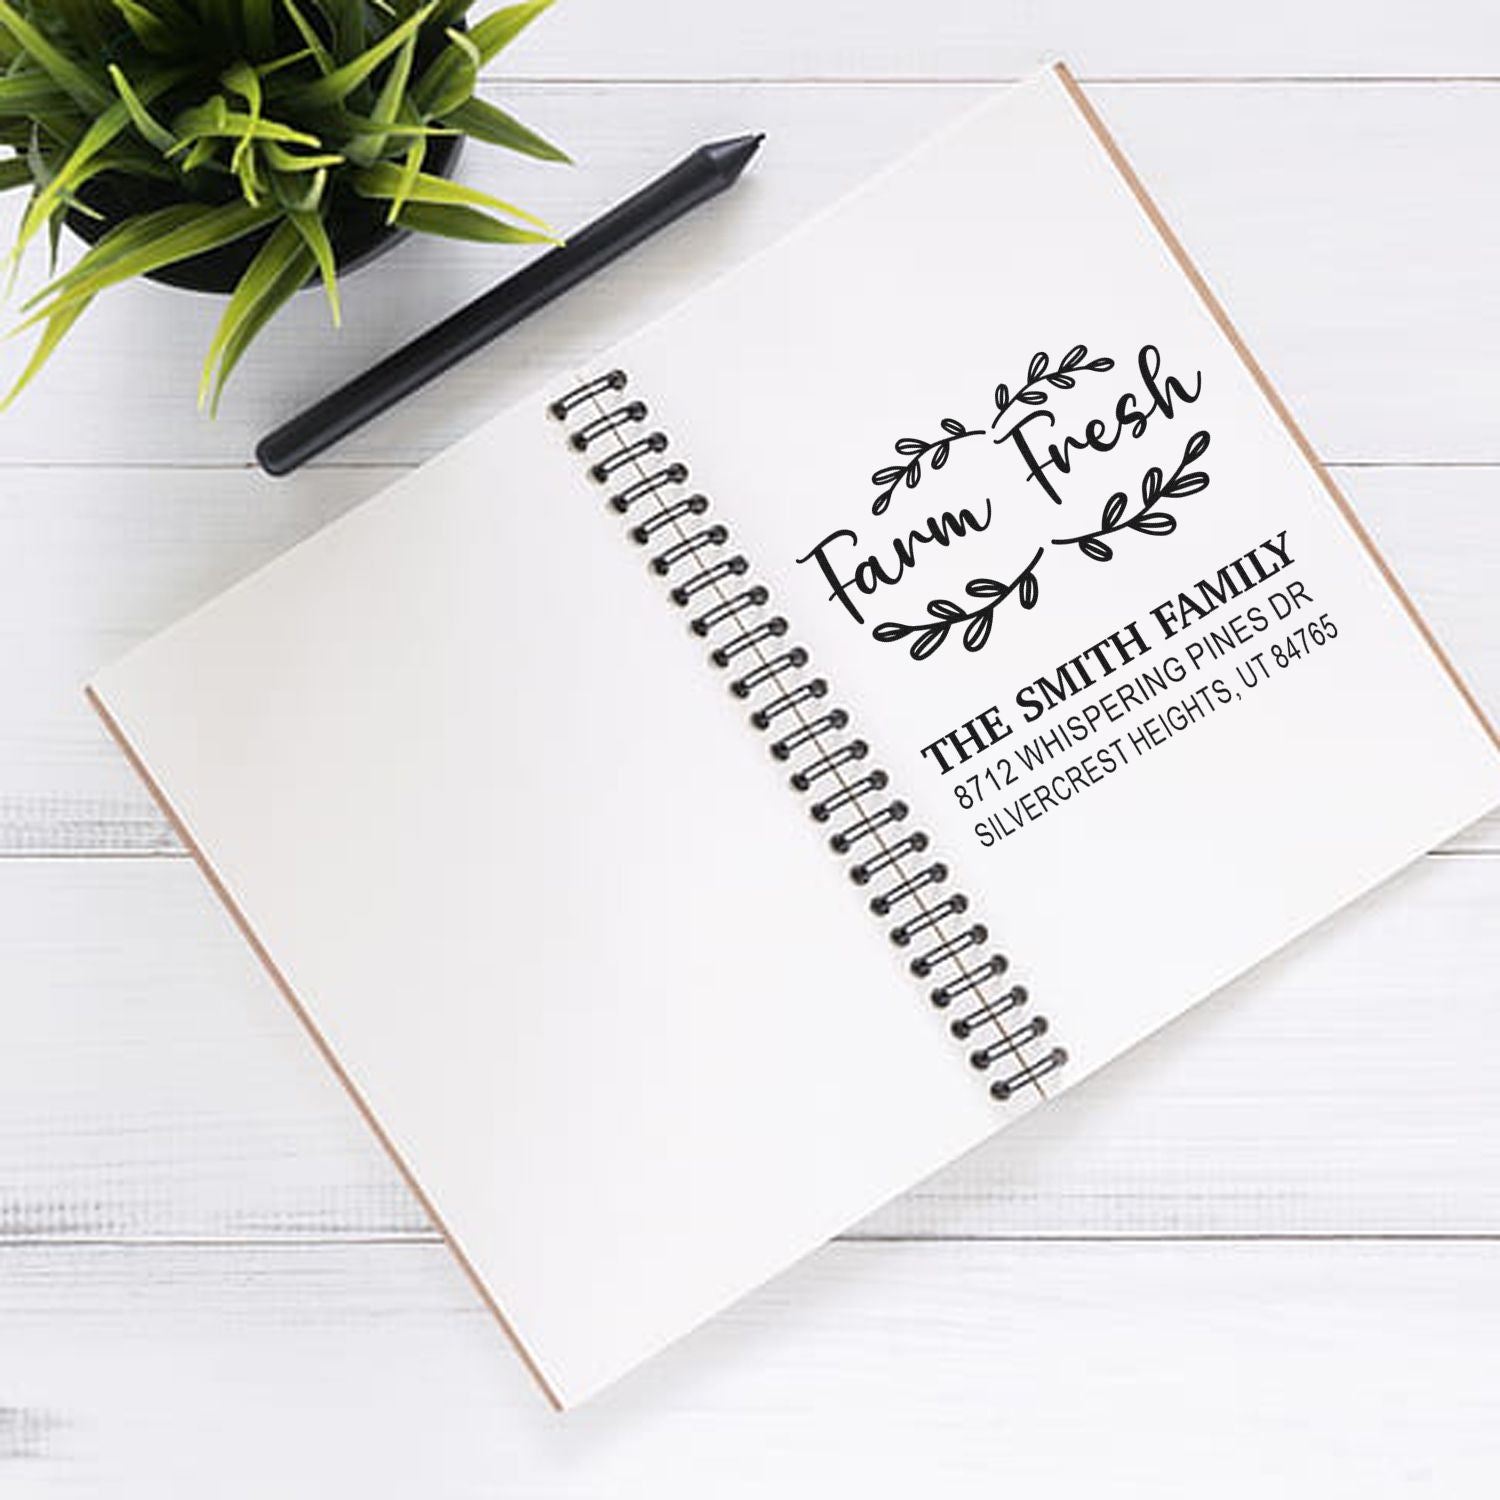 Farm Fresh
THE SMITH FAMILY
8712 WHISPERING PINES DR
SILVERCREST HEIGHTS, UT 84765